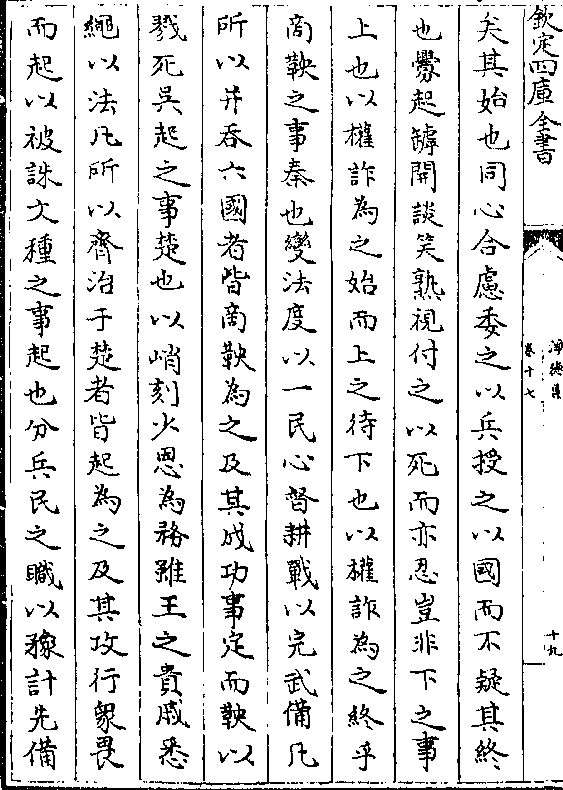 欽定四庫全書
淨德集
卷十七
十九
矣其始也同心合慮委之以兵授之以國而不疑其終
也釁起罅開談笑熟視付之以死而亦忍豈非下之事
上也以權詐為之始而上之待下也以權詐為之終乎
商鞅之事秦也變法度以一民心督耕戰以完武備凡
所以并吞六國者皆商鞅為之及其成功事定而鞅以
戮死吳起之事楚也以峭刻少恩為務雖王之貴戚悉
繩以法凡所以齊治于楚者皆起為之及其攻行衆畏
而起以被誅文種之事起也分兵民之職以稼計先備